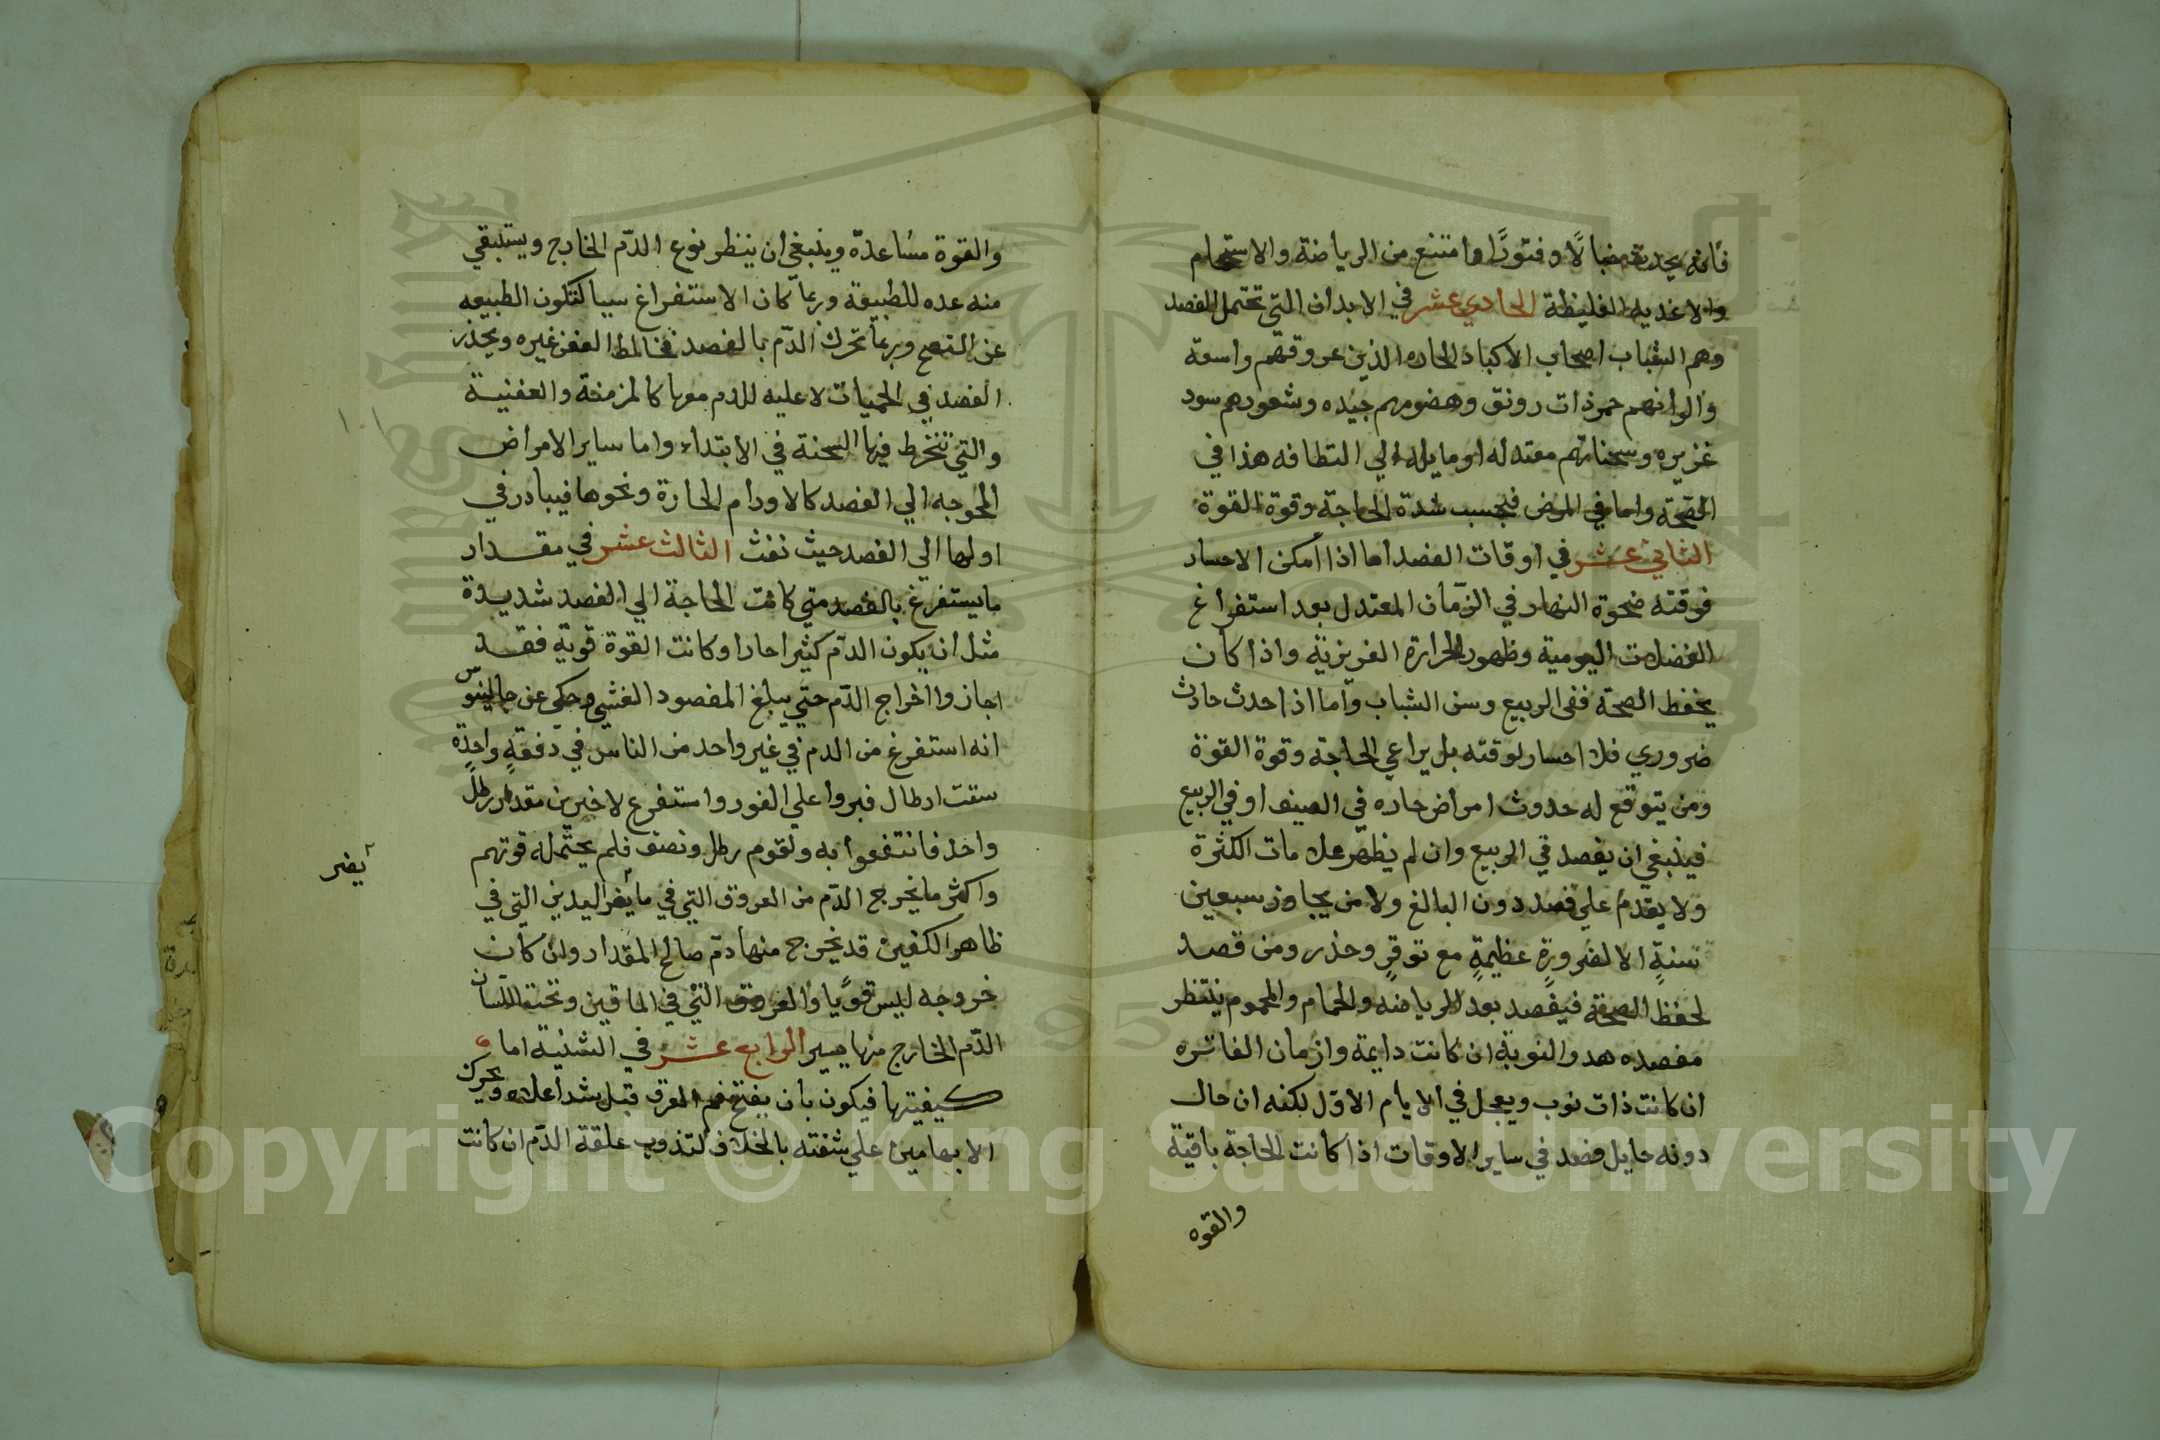 فانه يحدث خبالًا وفتورًا وامتنع من الرياضة والاستحمام
والاغديه الغليظة الحادي عشر في الابدان التي تحتمل الفصد
وهم الشباب اصحاب الاكباد الحاره الذين عروقهم واسعة
والوانهم حمر ذات رونق وهضومهم جيده وشعورهم سود
غزيره وسحناتهم معتدله او مايله الي النظافه هذا في
الصحة واما في المرض فبحسب شدة الحاجة وقوة القوة
الثاني عشر في اوقات الفصد اما اذا أمكن الاحسار
فوقته ضحوة النهار في الزمان المعتدل بعد استفراغ
الفضلات اليومية وظهور الحرارة الغريزية واذا كان
يحفظ الصحة ففي الربيع وسن الشباب وأما اذا حدث حادث
ضروري فلا احسار لوقته بل يراعي الحاجة وقوة القوة
ومن يتوقع له حدوث امراض حاره في الصيف او في الربيع
فينبغي ان يفصد في الربيع وان لم يظهر علامات الكثرة
ولا يقدم علي فصد دون البالغ ولا من يجاوز سبعين
سنةٍ الا لضرورةٍ عظيمةٍ مع توقرٍ وحذر ومن قصد
لحفظ الصحة فيفصد بعد الرياضه والحمام والمحموم ينتظر
مفصده هدو النوبة ان كانت دايمة وازمان الفاتره
ان كانت ذات نوب ويعجل في الايام الاول لكنه ان حال
دونه حايل فصد في ساير الاوقات اذا كانت الحاجة باقية
والقوه
والقوة مساعدة وينبغي ان ينظر نوع الدّم الخارج ويستبقي
منه عده للطبيعة وربما كان الاستفراغ سببا لتكون الطبيعه
عن النضج وربما تحرك الدّم بالفصد فخالط العفن غيره ويحذر
الفصد في الحميات لا عليه للدم معها كالمزمنة والعفنية
والتي تنخرط فيها السحنة في الابتداء واما ساير الامراض
المحوجه الي الفصد كالاورام الحارة ونحوها فيبادر في
اولها الي الفصد حيث نفث الثالث عشر في مقدار
ما يستفرغ بالفصد متي كانت الحاجة الي الفصد شديدة
مثل ان يكون الدّم كثيرا حارا وكانت القوة قوية فقد
اجازوا اخراج الدّم حتي يبلغ المفصود الغشي وحكي عن جالينوس
انه استفرغ من الدم في غير واحد من الناس في دفعةٍ واحدةٍ
ستت ارطال فبروا علي الفور واستفرغ لاخرين مقدار رطل
واحد فانتفعوا به ولقوم رطل ونصف فلم يحتمله قوتهم
واكثر ما يخرج الدّم من العروق التي في مايفر اليدين التي في
أيضر
ظاهر الكفين قد يخرج منها دم صالح المقدار ولن كان
خروجه ليس قويا والعروق التي في الماقين وتحت اللسان
الدّم الخارج منها يسير الرابع عشر في التثنية اما
كيفيتها فيكون بان يفتح فم العرق قبل شد اعلاه ويحرك
الابهامين علي شفته بالخلاف لتذوب علقة الدّم ان كانت
Copyright © King Saud University